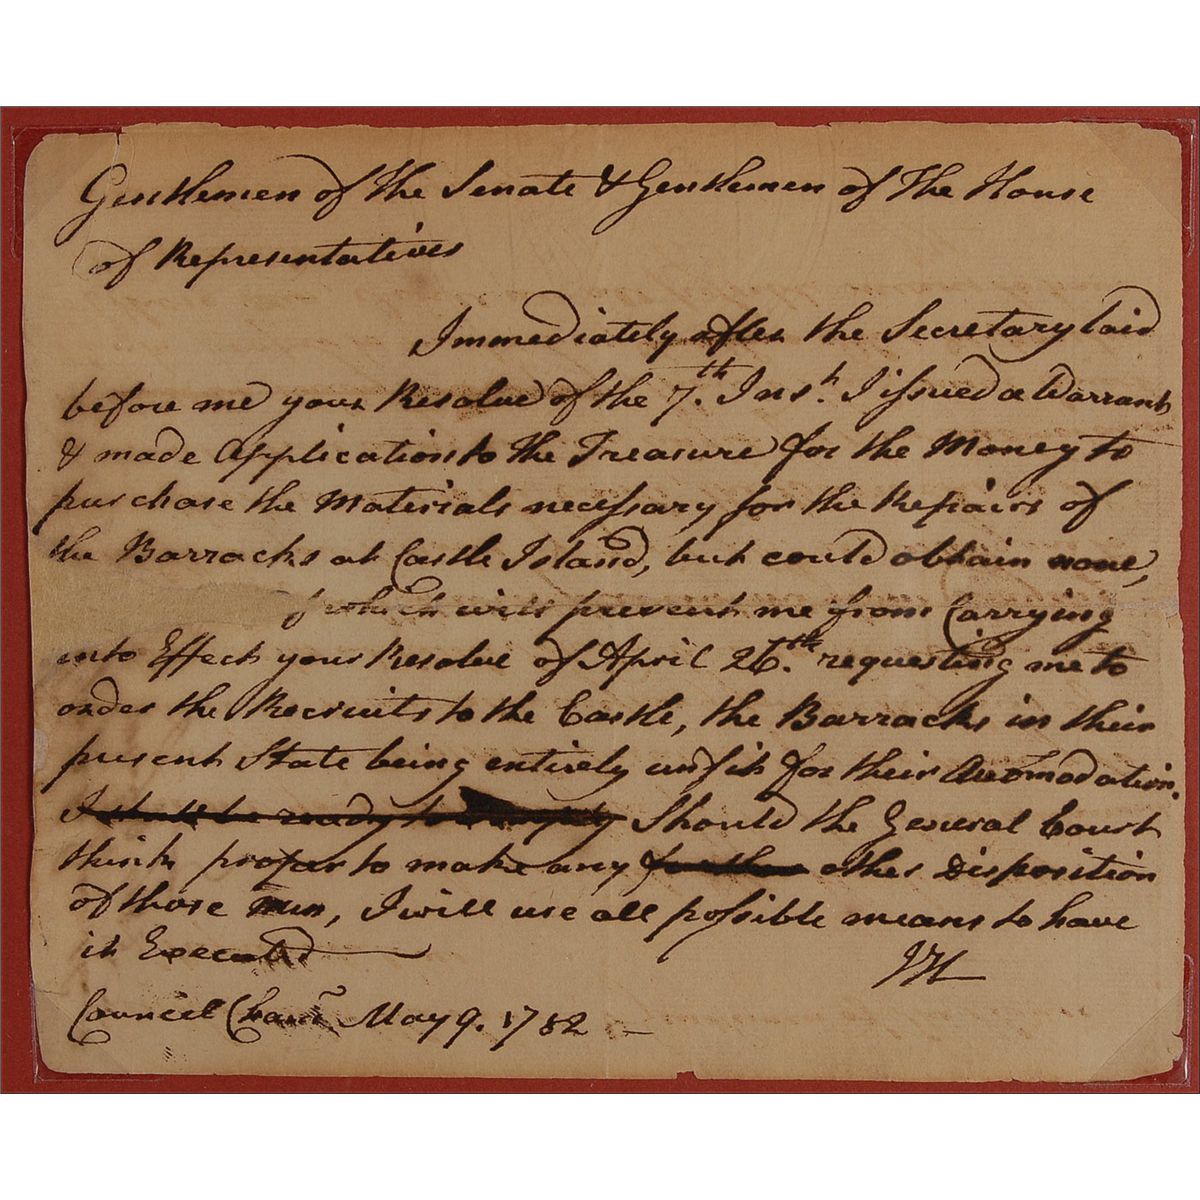 Gentlemen of the Senate & Gentlemen of The House
of Representatives
Immediately after the Secretary laid
before me your Resolve of the 7th. Inst. I issued a Warrant
& made Application to the Treasure for the Money to
purchase the Materials necessary for the Repairs of
the Barracks at Castle Island, but could obtain none,
which will prevent me from Carrying
into Effect your Resolve of April 26.th requesting me to
order the Recruits to the Castle, the Barracks in their
present State being entirely unfit for their Accomodation.
I shall be ready to Should the General Court
think proper to make any further other Disposition
of those Men, I will use all possible means to have
it Executed
JH
Council Cham.r May 9. 1782